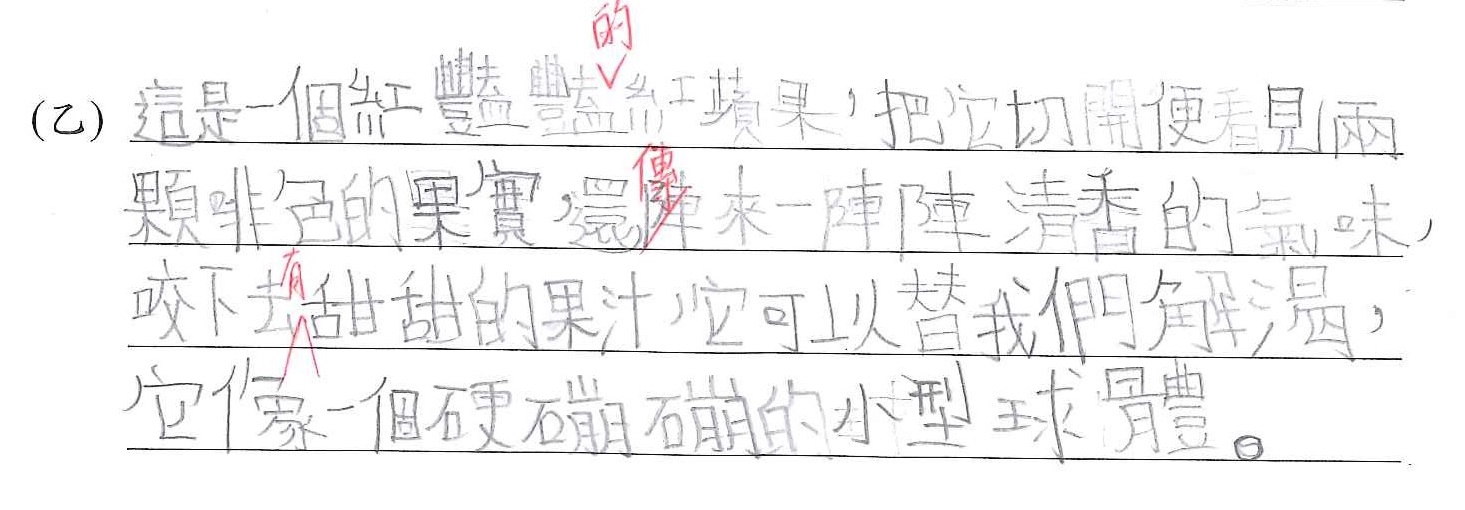 的
(乙) 這是一個紅豔豔紅蘋果，把它切開便看見兩
傳
顆啡色的果實，還陣來一陣陣清香的氣味，
有
咬下去甜甜的果汁，它可以替我們解渴，
它像一個硬磞磞的小型球體。